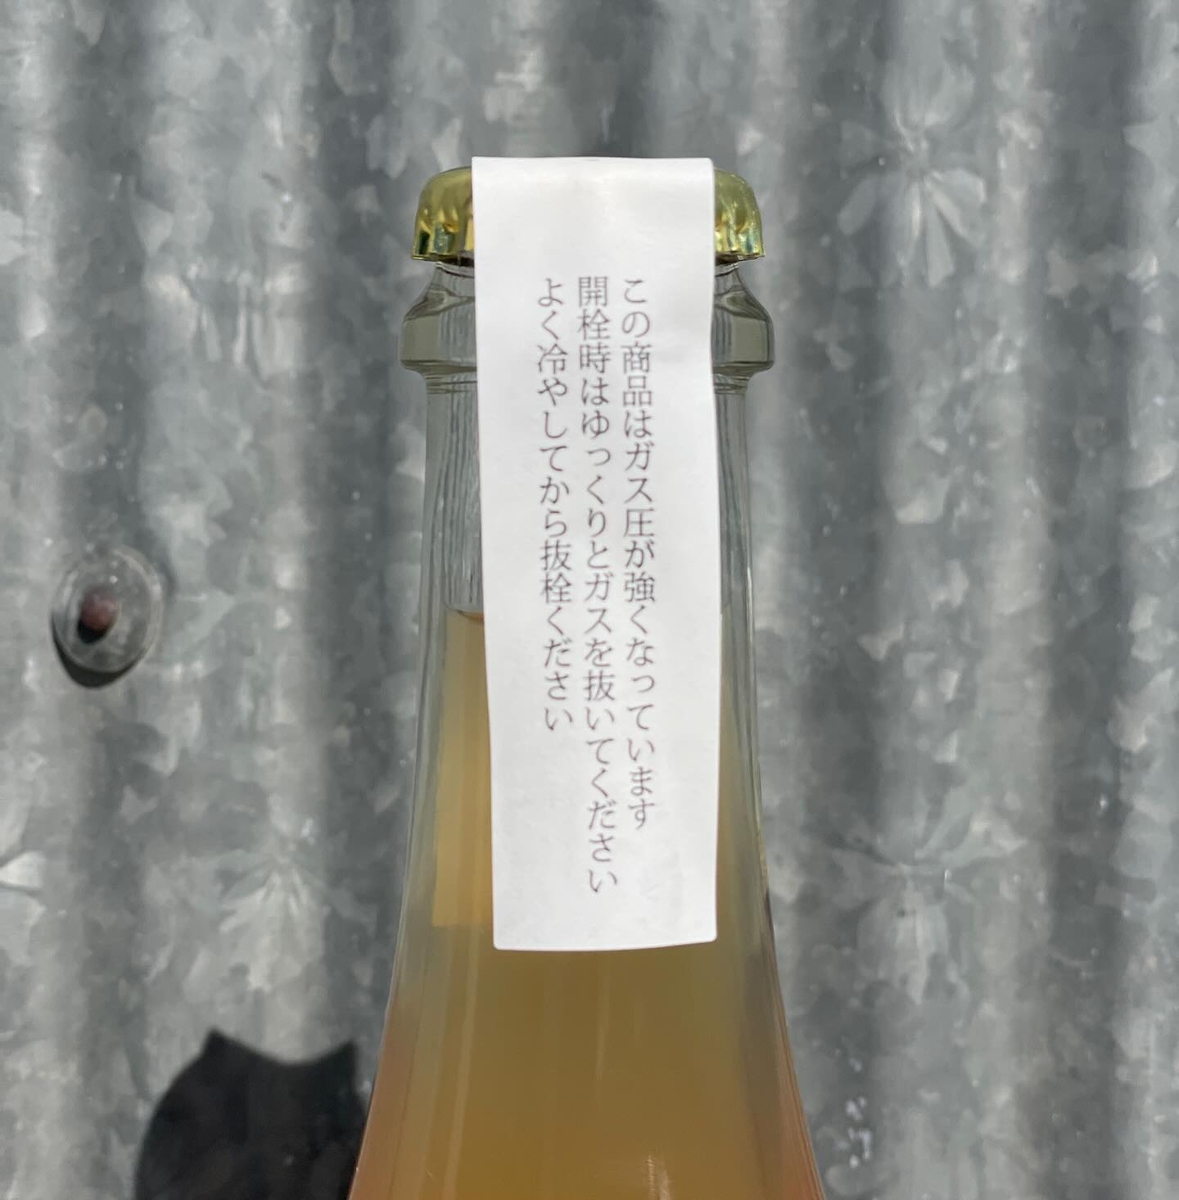 この商品はガス圧が強くなっています
開栓時はゆっくりとガスを抜いてください
よく冷やしてから抜栓ください